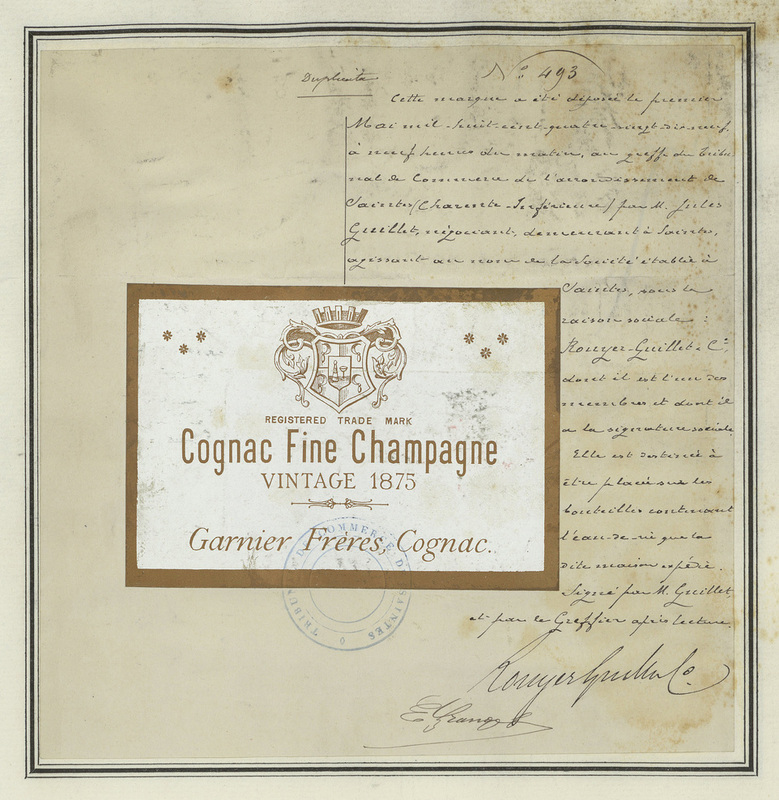 Duplicata
N° 493
Cette marque a été déposée le premier
Mai mil-huit-cent-quatre-vingt-dix-neuf,
à neuf heures du matin, au greffe du Tribu-
nal de Commerce de l'arrondissement de
Saintes (Charente-Inférieure) par M. Jules
Guillet, négociant, demeurant à Saintes,
agissant au nom de la Société établie à
Saintes, sous la
raison sociale :
Rouyer-Guillet & Cie,
dont il est l'un des
membres et dont il
a la signature sociale.
Elle est destinée à
être placée sur les
bouteilles contenant
l'eau-de-vie que la
dite maison expédie.
Signé par M. Guillet,
et par le Greffier après lecture.
REGISTERED TRADE MARK
Cognac Fine Champagne
VINTAGE 1875
Garnier Frères, Cognac.
TRIBUNAL DE COMMERCE DE SAINTES
Rouyer Guillet Co